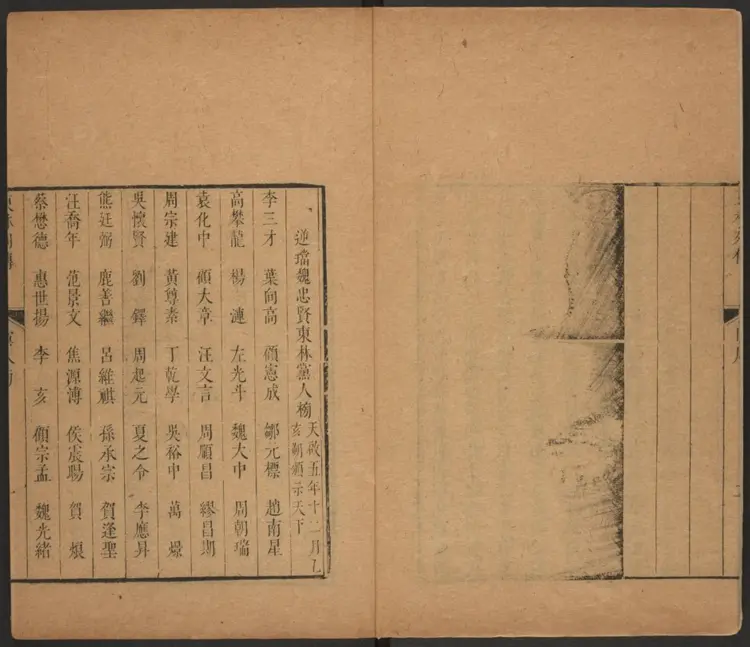 逆璫魏忠賢東林黨人榜
天啟五年十二月乙
亥朔頒示天下
李三才 葉向高 顧憲成 鄒元標 趙南星
高攀龍 楊漣 左光斗 魏大中 周朝瑞
袁化中 顧大章 汪文言 周順昌 繆昌期
周宗建 黃尊素 丁乾學 吳裕中 萬燝
吳懷賢 劉鐸 周起元 夏之令 李應昇
熊廷弼 鹿善繼 呂維祺 孫承宗 賀逢聖
汪喬年 范景文 焦源溥 侯震暘 賀烺
蔡懋德 惠世揚 李亥 顧宗孟 魏光緒